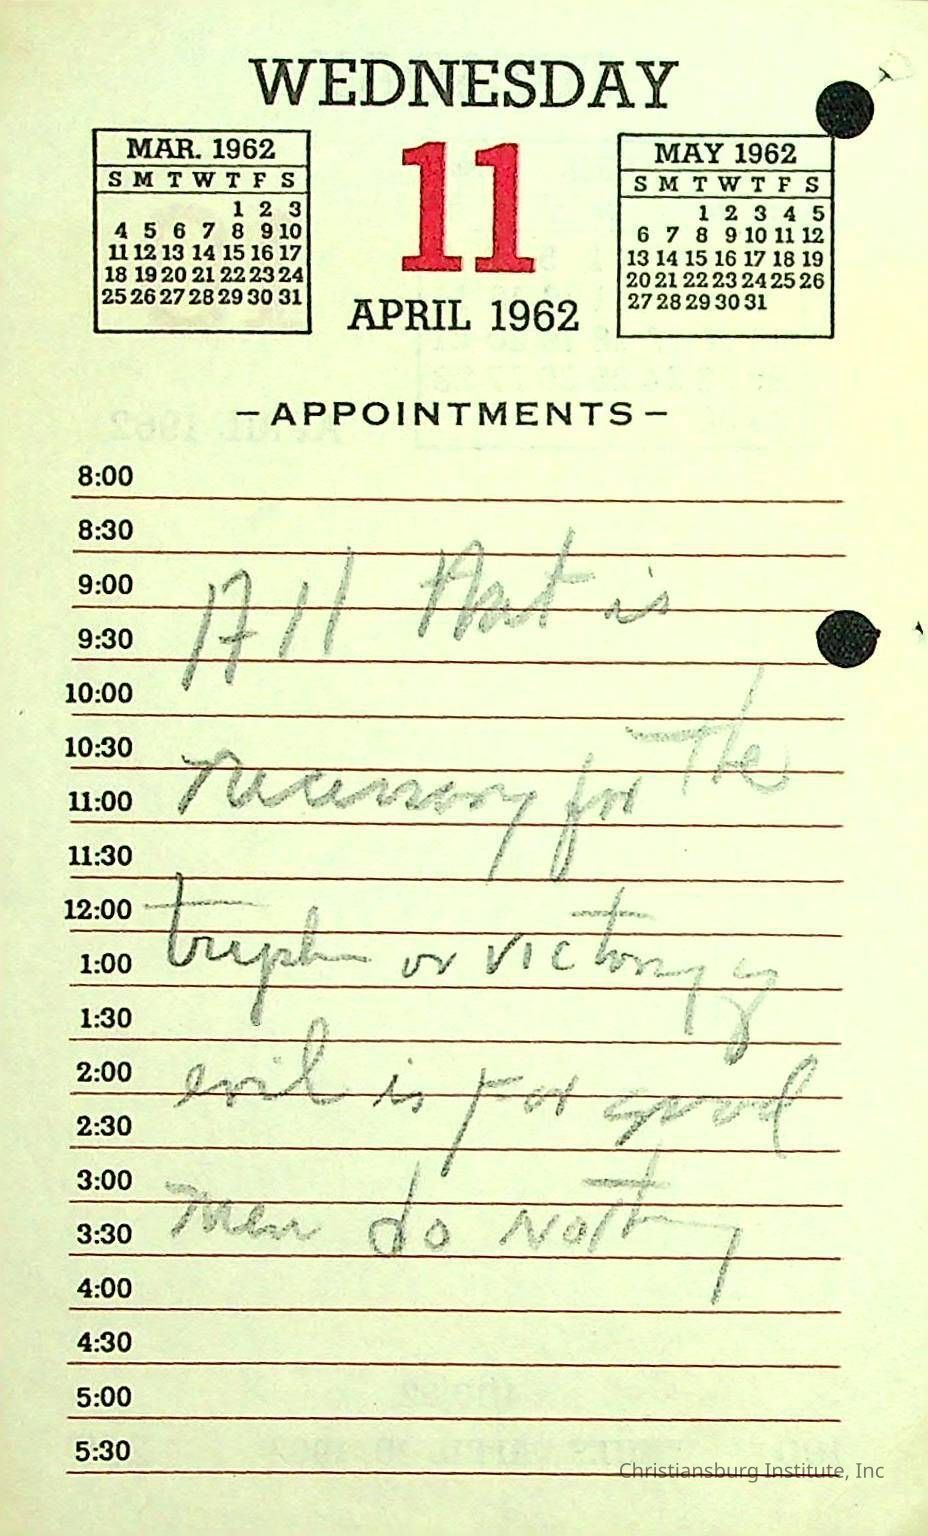 WEDNESDAY
MAR. 1962
S M T W T F S
1 2 3
4 5 6 7 8 9 10
11 12 13 14 15 16 17
18 19 20 21 22 23 24
25 26 27 28 29 30 31
11
APRIL 1962
MAY 1962
S M T W T F S
1 2 3 4 5
6 7 8 9 10 11 12
13 14 15 16 17 18 19
20 21 22 23 24 25 26
27 28 29 30 31
-APPOINTMENTS-
8:00
8:30
9:00
All that is
9:30
10:00
10:30
necessary for the
11:00
11:30
12:00
or victory
1:00
1:30
2:00
evil is for good
2:30
3:00
men do
3:30
4:00
4:30
5:00
5:30
Christiansburg Institute, Inc